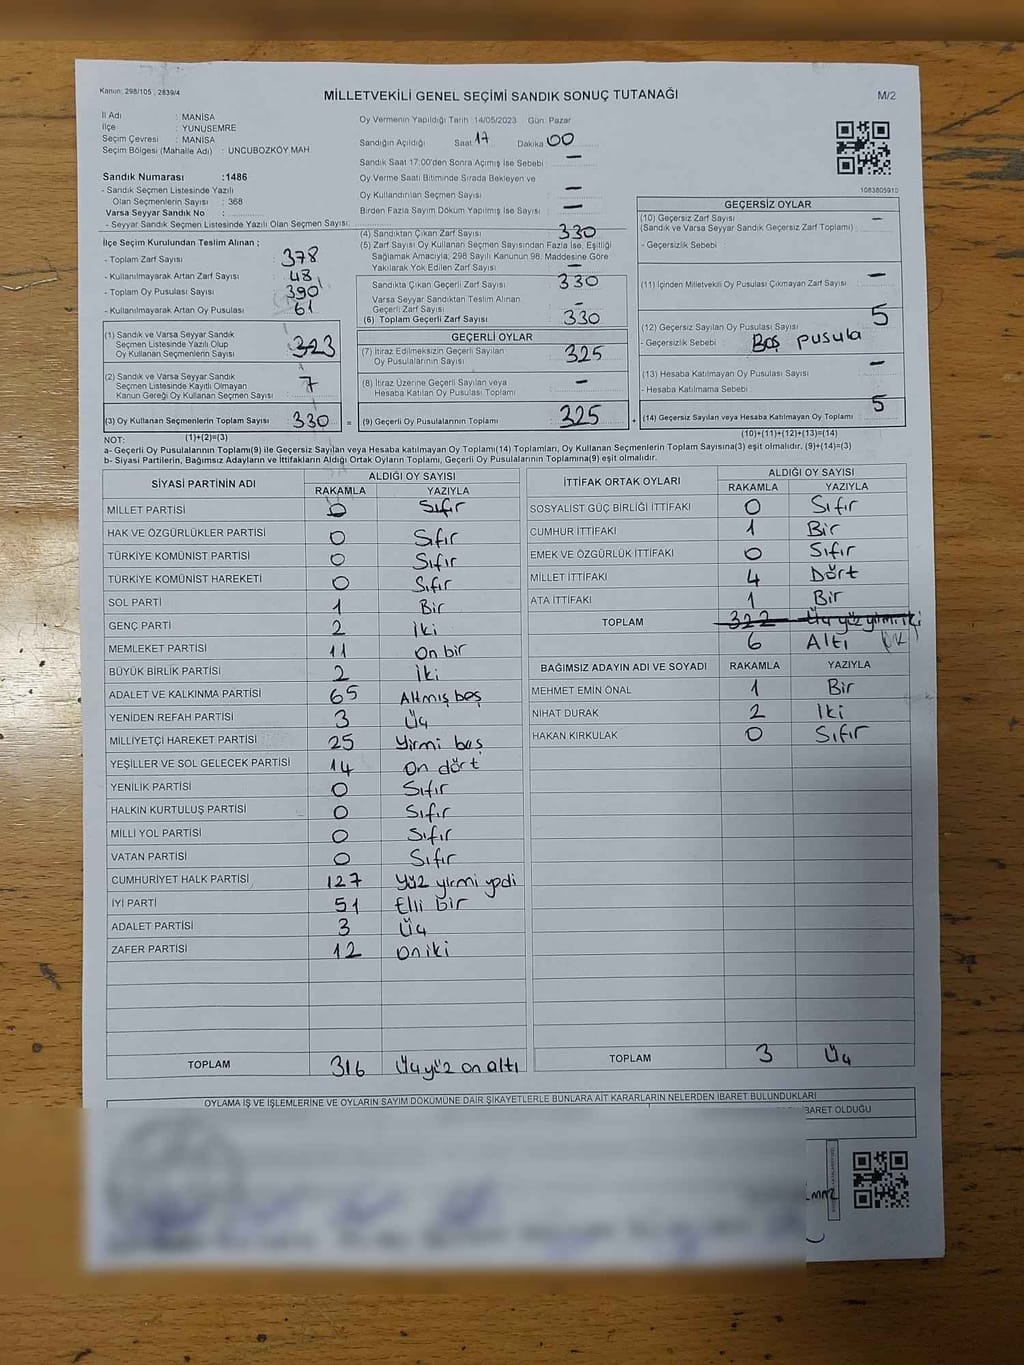 Kanun: 298/105 , 2839/4
MİLLETVEKİLİ GENEL SEÇİMİ SANDIK SONUÇ TUTANAĞI
M/2
İl Adı : MANİSA
İlçe : YUNUSEMRE
Seçim Çevresi : MANİSA
Seçim Bölgesi (Mahalle Adı) : UNCUBOZKÖY MAH
Sandık Numarası :1486
- Sandık Seçmen Listesinde Yazılı
Olan Seçmenlerin Sayısı : 368
Varsa Seyyar Sandık No :
- Seyyar Sandık Seçmen Listesinde Yazılı Olan Seçmen Sayısı:
Oy Vermenin Yapıldığı Tarih :14/05/2023 Gün: Pazar
Sandığın Açıldığı Saat 17 Dakika 00
Sandık Saat 17:00'den Sonra Açımış İse Sebebi : —
Oy Verme Saati Bitiminde Sırada Bekleyen ve
Oy Kullandırılan Seçmen Sayısı : —
Birden Fazla Sayım Döküm Yapılmış İse Sayısı : —
1083805910
İlçe Seçim Kurulundan Teslim Alınan ;
- Toplam Zarf Sayısı : 378
- Kullanılmayarak Artan Zarf Sayısı : 48
- Toplam Oy Pusulası Sayısı : 390
- Kullanılmayarak Artan Oy Pusulası : 61
(1) Sandık ve Varsa Seyyar Sandık
Seçmen Listesinde Yazılı Olup
Oy Kullanan Seçmenlerin Sayısı : 323
(2) Sandık ve Varsa Seyyar Sandık
Seçmen Listesinde Kayıtlı Olmayan
Kanun Gereği Oy Kullanan Seçmen Sayısı : 7
(3) Oy Kullanan Seçmenlerin Toplam Sayısı : 330
(1)+(2)=(3)
(4) Sandıktan Çıkan Zarf Sayısı : 330
(5) Zarf Sayısı Oy Kullanan Seçmen Sayısından Fazla İse, Eşitliği
Sağlamak Amacıyla, 298 Sayılı Kanunun 98. Maddesine Göre
Yakılarak Yok Edilen Zarf Sayısı : —
Sandıkta Çıkan Geçerli Zarf Sayısı : 330
Varsa Seyyar Sandıktan Teslim Alınan
Geçerli Zarf Sayısı : —
(6) Toplam Geçerli Zarf Sayısı : 330
GEÇERLİ OYLAR
(7) İtiraz Edilmeksizin Geçerli Sayılan
Oy Pusulalarının Sayısı : 325
(8) İtiraz Üzerine Geçerli Sayılan veya
Hesaba Katılan Oy Pusulası Toplamı : —
= (9) Geçerli Oy Pusulalarının Toplamı : 325
GEÇERSİZ OYLAR
(10) Geçersiz Zarf Sayısı —
(Sandık ve Varsa Seyyar Sandık Geçersiz Zarf Toplamı) :
- Geçersizlik Sebebi :
(11) İçinden Milletvekili Oy Pusulası Çıkmayan Zarf Sayısı : —
(12) Geçersiz Sayılan Oy Pusulası Sayısı : 5
- Geçersizlik Sebebi : Boş pusula
(13) Hesaba Katılmayan Oy Pusulası Sayısı : —
- Hesaba Katılmama Sebebi :
+ (14) Geçersiz Sayılan veya Hesaba Katılmayan Oy Toplamı : 5
(10)+(11)+(12)+(13)=(14)
NOT:
a- Geçerli Oy Pusulalarının Toplamı(9) ile Geçersiz Sayılan veya Hesaba katılmayan Oy Toplamı(14) Toplamları, Oy Kullanan Seçmenlerin Toplam Sayısına(3) eşit olmalıdır. (9)+(14)=(3)
b- Siyasi Partilerin, Bağımsız Adayların ve İttifakların Aldığı Ortak Oyların Toplamı, Geçerli Oy Pusulalarının Toplamına(9) eşit olmalıdır.
SİYASİ PARTİNİN ADI ALDIĞI OY SAYISI
RAKAMLA YAZIYLA
MİLLET PARTİSİ 0 Sıfır
HAK VE ÖZGÜRLÜKLER PARTİSİ 0 Sıfır
TÜRKİYE KOMÜNİST PARTİSİ 0 Sıfır
TÜRKİYE KOMÜNİST HAREKETİ 0 Sıfır
SOL PARTİ 1 Bir
GENÇ PARTİ 2 İki
MEMLEKET PARTİSİ 11 On bir
BÜYÜK BİRLİK PARTİSİ 2 İki
ADALET VE KALKINMA PARTİSİ 65 Altmış beş
YENİDEN REFAH PARTİSİ 3 Üç
MİLLİYETÇİ HAREKET PARTİSİ 25 Yirmi beş
YEŞİLLER VE SOL GELECEK PARTİSİ 14 On dört
YENİLİK PARTİSİ 0 Sıfır
HALKIN KURTULUŞ PARTİSİ 0 Sıfır
MİLLİ YOL PARTİSİ 0 Sıfır
VATAN PARTİSİ 0 Sıfır
CUMHURİYET HALK PARTİSİ 127 Yüz yirmi yedi
İYİ PARTİ 51 Elli bir
ADALET PARTİSİ 3 Üç
ZAFER PARTİSİ 12 On iki
TOPLAM 316 Üçyüz on altı
İTTİFAK ORTAK OYLARI ALDIĞI OY SAYISI
RAKAMLA YAZIYLA
SOSYALİST GÜÇ BİRLİĞİ İTTİFAKI 0 Sıfır
CUMHUR İTTİFAKI 1 Bir
EMEK VE ÖZGÜRLÜK İTTİFAKI 0 Sıfır
MİLLET İTTİFAKI 4 Dört
ATA İTTİFAKI 1 Bir
TOPLAM 322 Üçyüz yirmi iki
6 Altı
BAĞIMSIZ ADAYIN ADI VE SOYADI RAKAMLA YAZIYLA
MEHMET EMİN ÖNAL 1 Bir
NİHAT DURAK 2 İki
HAKAN KIRKULAK 0 Sıfır
TOPLAM 3 Üç
OYLAMA İŞ VE İŞLEMLERİNE VE OYLARIN SAYIM DÖKÜMÜNE DAİR ŞİKAYETLERLE BUNLARA AİT KARARLARIN NELERDEN İBARET BULUNDUKLARI
İBARET OLDUĞU